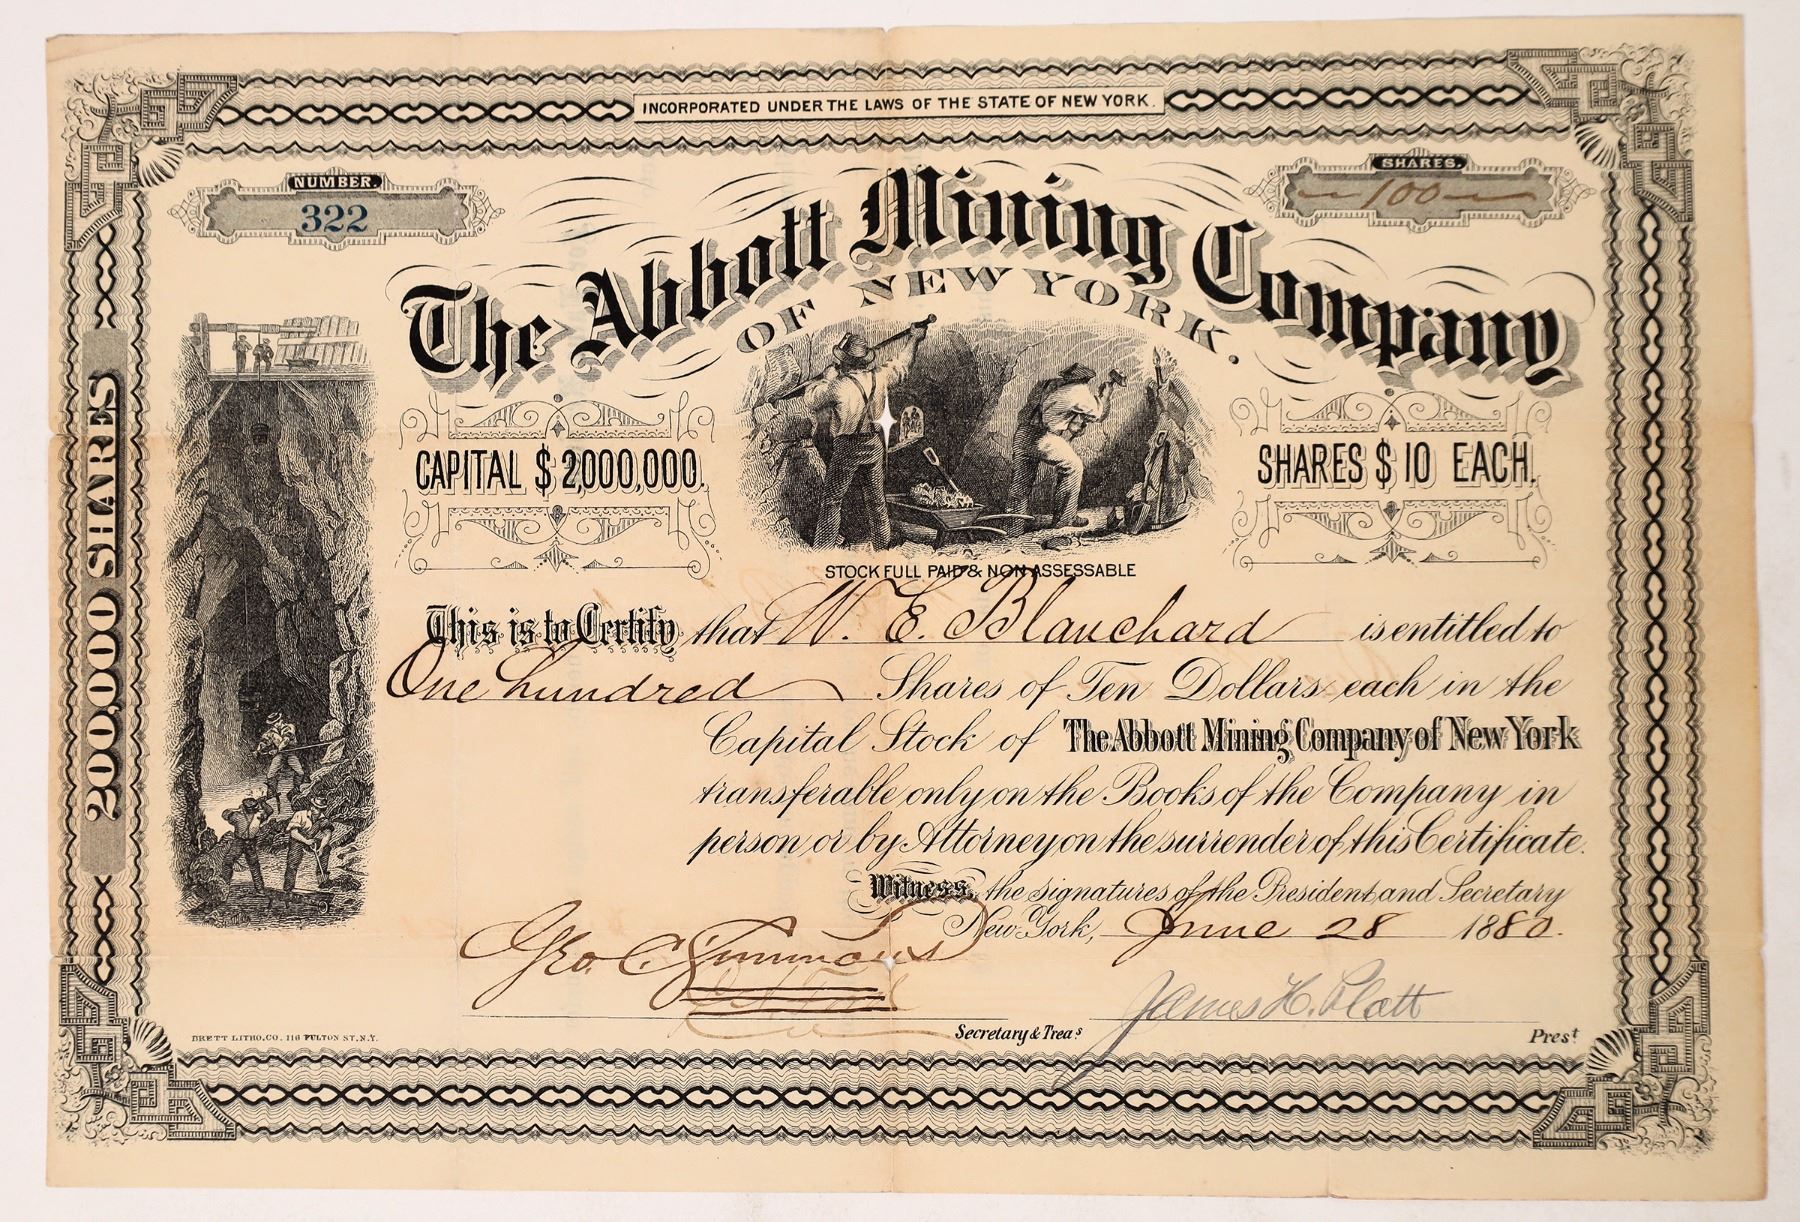 INCORPORATED UNDER THE LAWS OF THE STATE OF NEW YORK.
NUMBER.
322
SHARES.
100
The Abbott Mining Company
OF NEW YORK.
CAPITAL $ 2,000,000.
SHARES $ 10 EACH.
200,000 SHARES
STOCK FULL PAID & NON ASSESSABLE
This is to Certify that W. E. Blanchard is entitled to
One hundred Shares of Ten Dollars each in the
Capital Stock of The Abbott Mining Company of New York
transferable only on the Books of the Company in
person or by Attorney on the surrender of this Certificate.
Witness, the signatures of the President and Secretary
New York, June 28 1880.
Geo. C. Simmons
James H. Platt
Secretary & Treas.
Prest
BRETT LITHO. CO. 116 FULTON ST. N.Y.